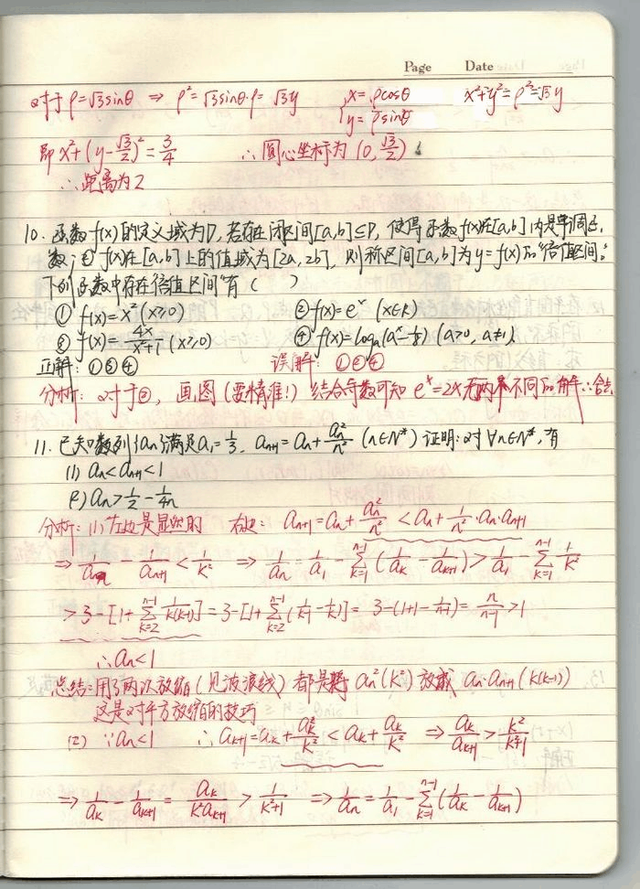 Page Date
对于 ρ=√3sinθ ⇒ ρ²=√3sinθ·ρ=√3y {x=ρcosθ y=ρsinθ x²+y²=ρ²=√3y
即 x²+(y-√3/2)²=3/4 ∴圆心坐标为 (0, √3/2)
∴距离为2
10. 函数f(x)的定义域为D, 若存在闭区间[a,b]⊆D, 使得函数f(x)在[a,b]内是单调函
数; ②f(x)在[a,b]上的值域为[2a,2b], 则称区间[a,b]为y=f(x)的“倍值区间”。
下列函数中存在“倍值区间”有 ( )
① f(x)=x² (x≥0) ② f(x)=eˣ (x∈R)
③ f(x)=4x/(x²+1) (x≥0) ④ f(x)=logₐ(aˣ-1/8) (a>0, a≠1)
正解: ①③④ 误解: ①②④
分析: 对于②, 画图(要精准!) 结合导数可知 eˣ=2x无两个不同的解∴舍去
11. 已知数列{an}满足a₁=1/3, an+1=an+an²/n² (n∈N*) 证明: 对∀n∈N*, 有
(1) an<an+1<1
(2) an>1/2-1/4n
分析: (1) 左边是显然的 右边: an+1=an+an²/n²<an+1/n²·an·an+1
⇒ 1/an - 1/an+1 < 1/k² ⇒ 1/an=1/a₁-∑(k=1→n-1)(1/ak-1/ak+1)>1/a₁-∑(k=1→n-1)1/k²
>3-[1+∑(k=2→n-1)1/k(k-1)]=3-[1+∑(k=2→n-1)(1/(k-1)-1/k)]=3-(1+1-1/(n-1))=n/(n-1)>1
∴an<1
总结: 用了两次放缩(见波浪线) 都是将 an²(k²) 放成 an·an+1(k(k-1))
这是对平方放缩的技巧
(2) ∵an<1 ∴ak+1=ak+ak²/k²<ak+ak/k² ⇒ ak/ak+1>k²/(k²+1)
⇒ 1/ak-1/ak+1=ak/(k²ak+1)>1/(k²+1) ⇒ 1/an=1/a₁-∑(k=1→n-1)(1/ak-1/ak+1)